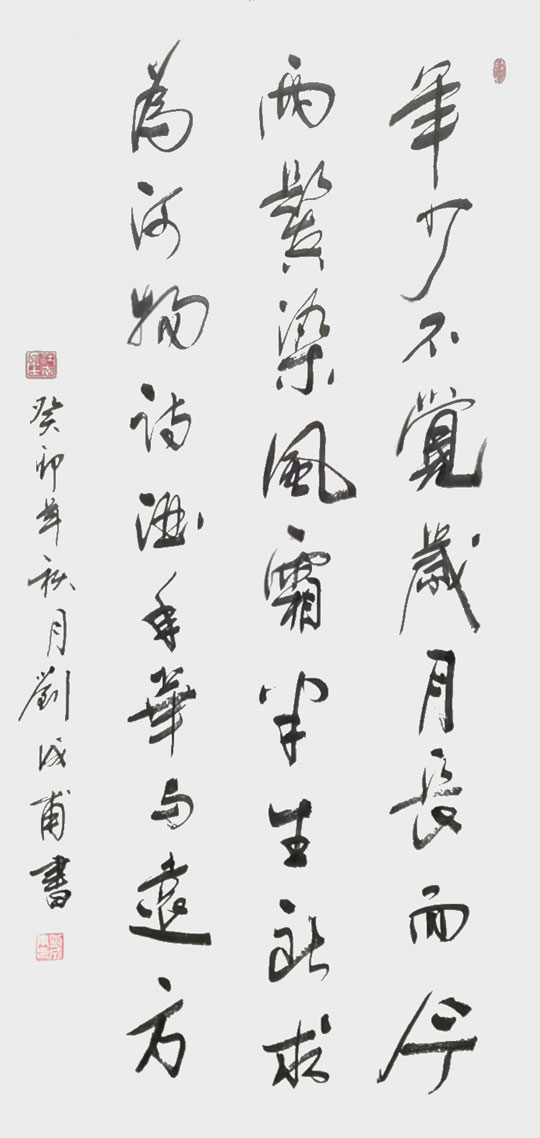 年少不覺歲月長而今
兩鬢染風霜半生所求
為何物詩酒年華与遠方
癸卯年秋月劉成甫書